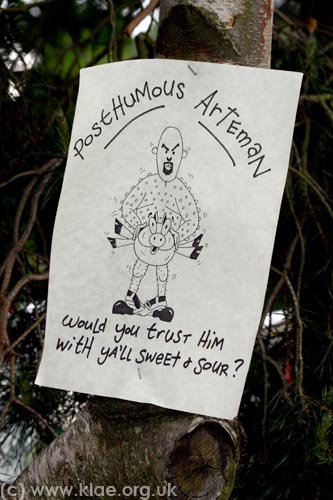 PostHUMOUS ARTEMAN
WOULD YOU TRUST HIM
WITH YA'LL SWEET & SOUR?
(c) www.klae.org.uk